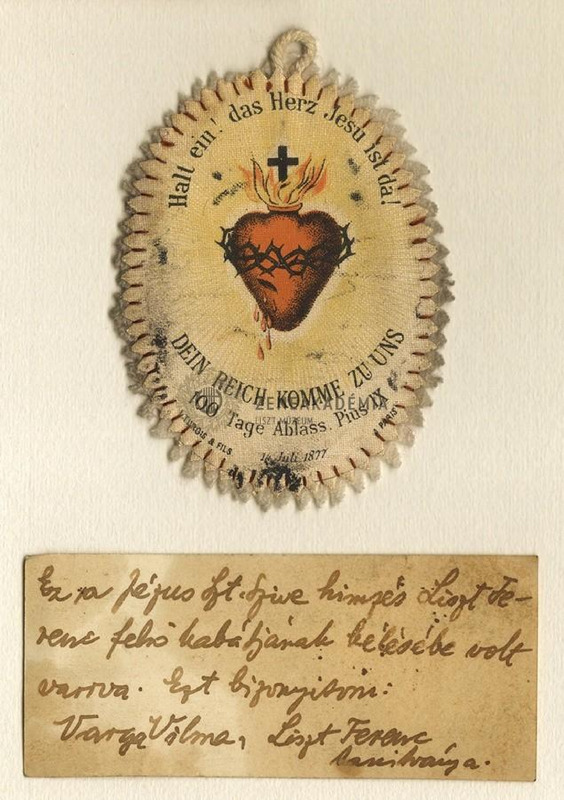 Halt ein! das Herz Jesu ist da!
DEIN REICH KOMME ZU UNS
ZENEAKADÉMIA
LISZT MÚZEUM
100 Tage Ablass. Pius IX
& FILS
PARIS
14 Juli 1877
Ez a Jézus szt. Szive himzés Liszt Fe-
renc felső kabátjának bélésébe volt
varrva. Ezt bizonyitom:
Varga Vilma, Liszt Ferenc
tanitványa.